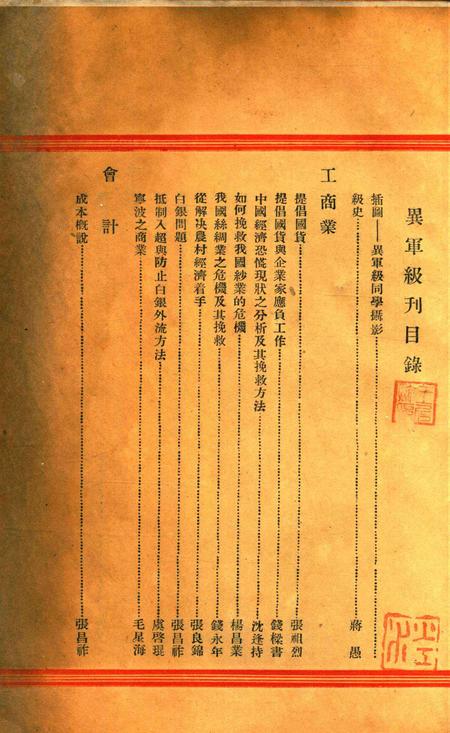 異軍級刊目錄
插圖——異軍級同學攝影
級史 蔣愚
工商業
提倡國貨 張祖烈
提倡國貨與企業家應負工作 錢樑書
中國經濟恐慌現狀之分析及其挽救方法 沈逢持
如何挽救我國紗業的危機 楊昌業
我國絲綢業之危機及其挽救 錢永年
從解決農村經濟着手 張良錦
白銀問題 張昌祚
抵制入超與防止白銀外流方法 虞啓琨
寧波之商業 毛星海
會計
成本概說 張昌祚